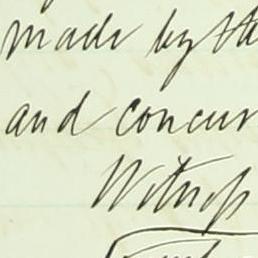 made by the
and concur
Witness